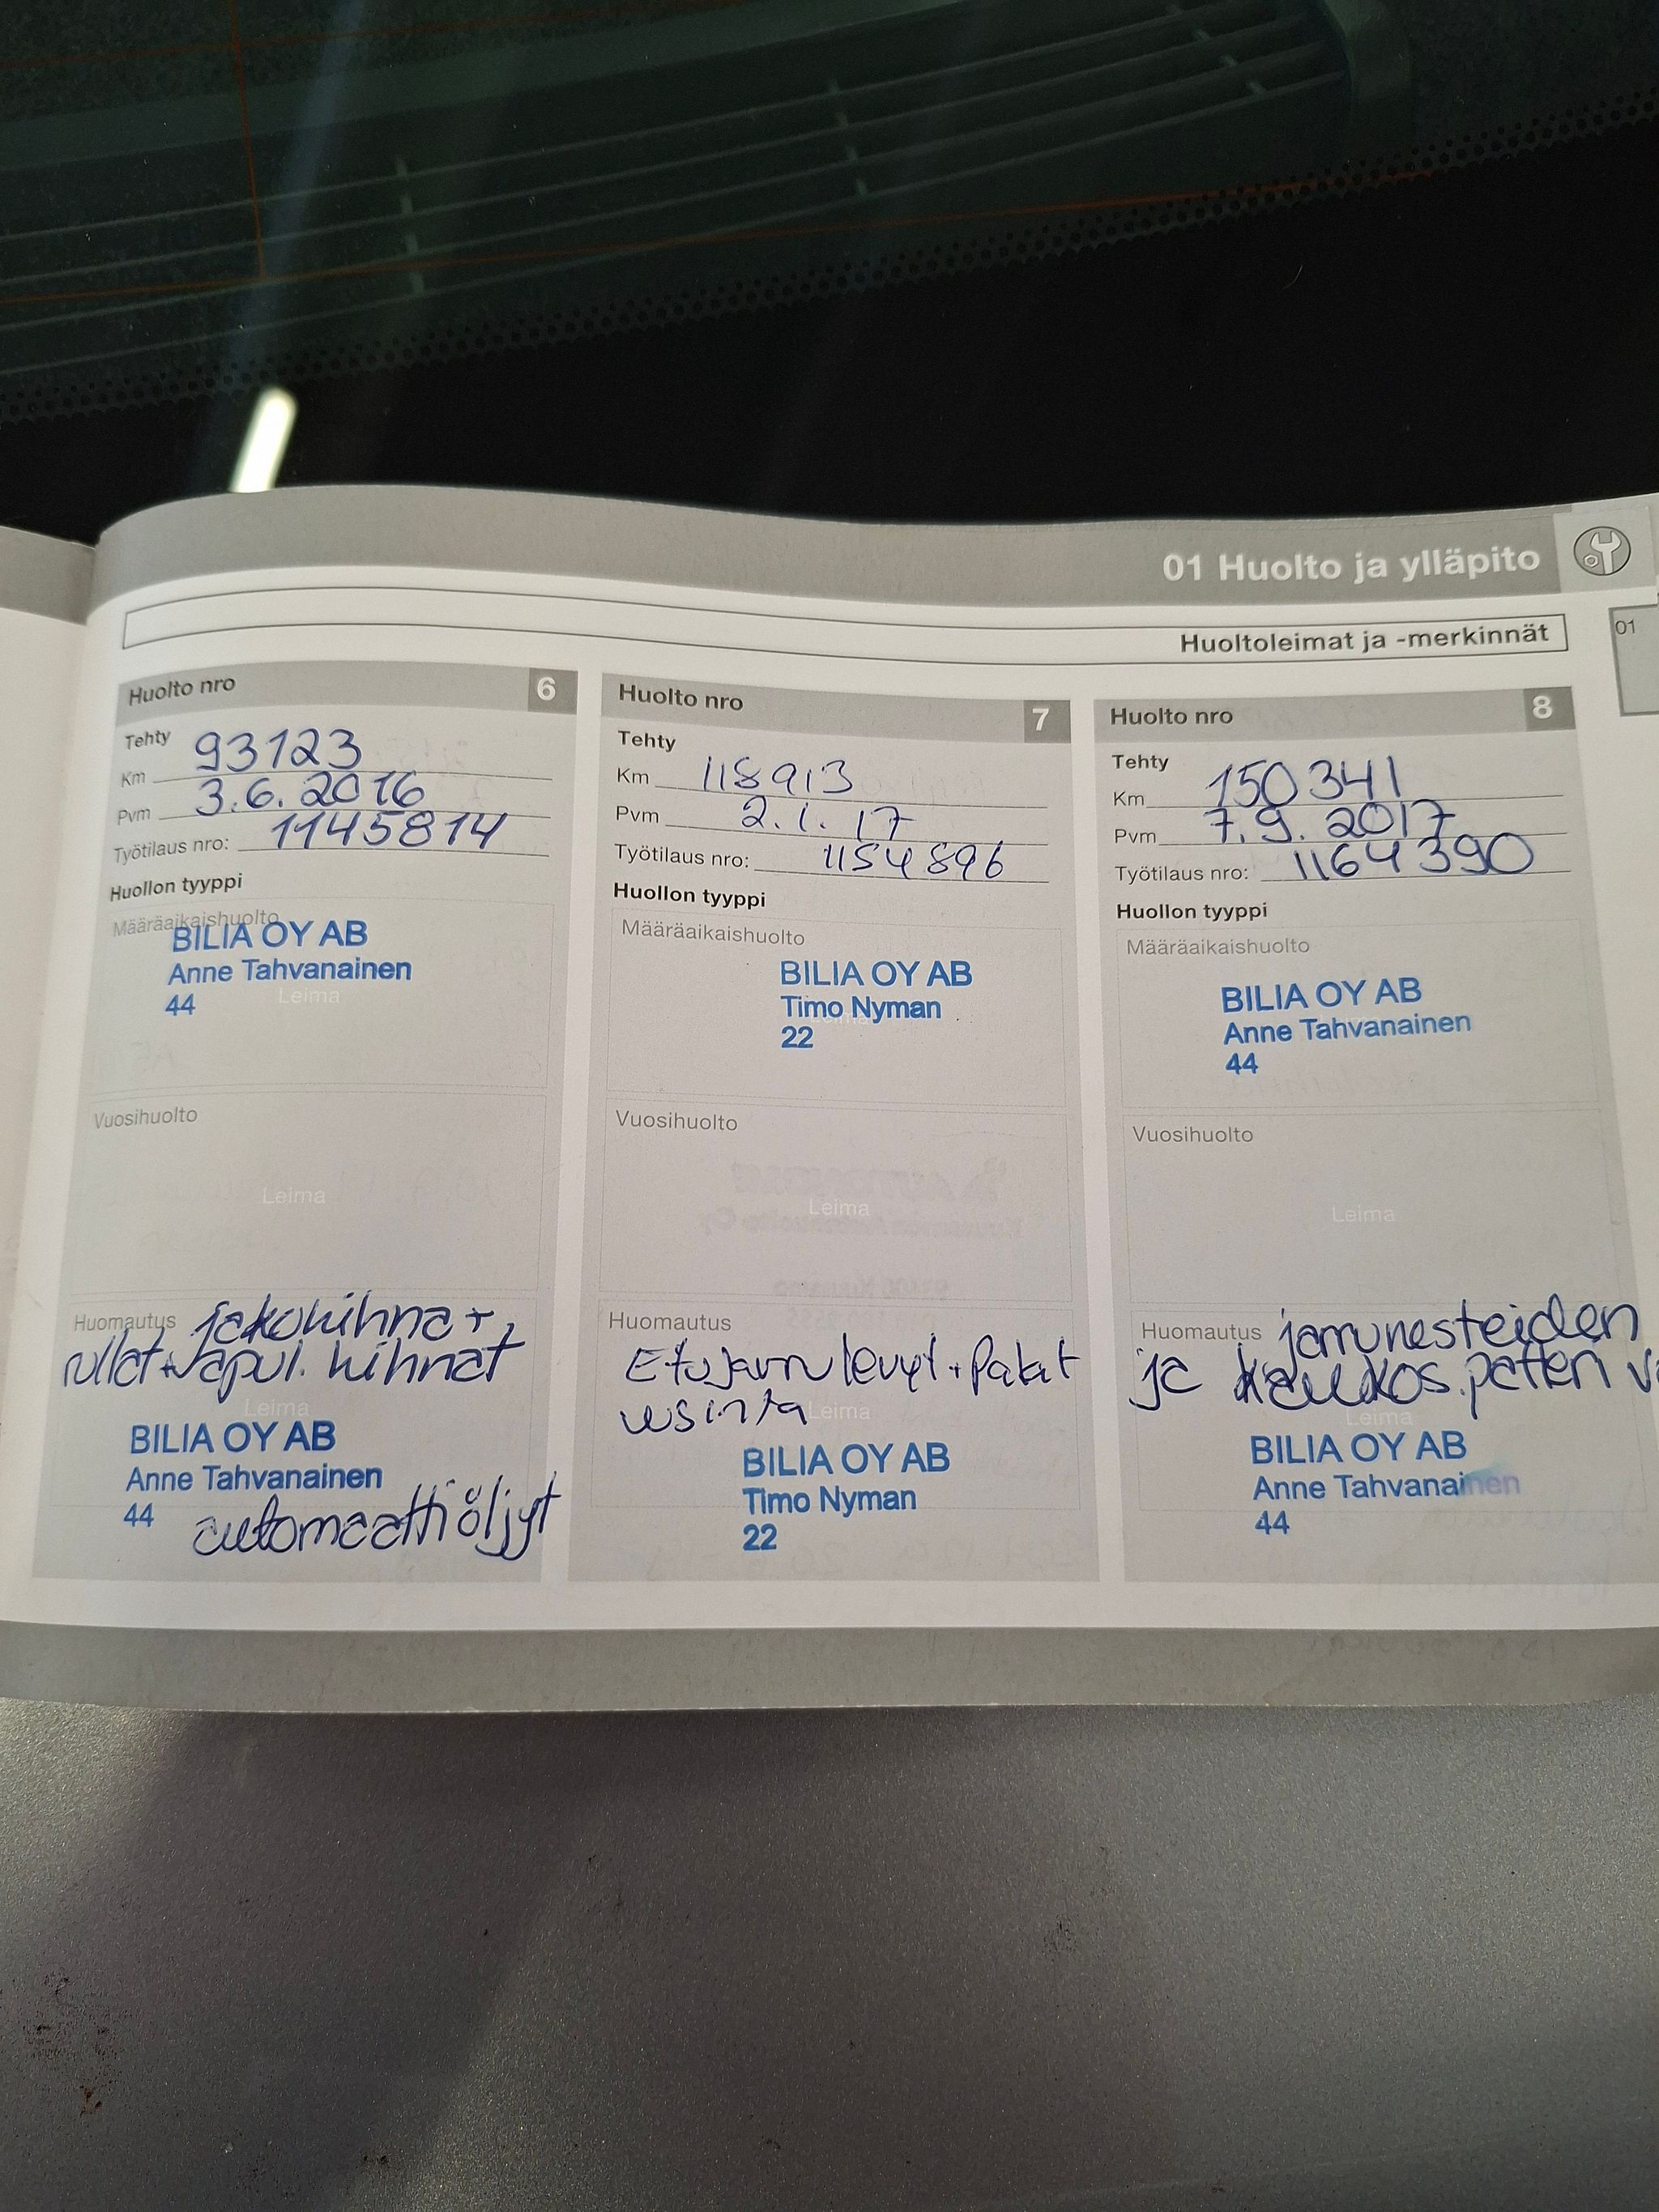 01 Huolto ja ylläpito
Huoltoleimat ja -merkinnät
01
Huolto nro 6
Tehty
Km 93123
Pvm 3.6.2016
Työtilaus nro: 1145814
Huollon tyyppi
Määräaikaishuolto
BILIA OY AB
Anne Tahvanainen
Leima
44
Vuosihuolto
Leima
Huomautus jakohihna +
rullat + apul. hihnat
Leima
BILIA OY AB
Anne Tahvanainen
44
automaattiöljyt
Huolto nro 7
Tehty
Km 118913
Pvm 2.1.17
Työtilaus nro: 1154896
Huollon tyyppi
Määräaikaishuolto
BILIA OY AB
Timo Nyman
22
Vuosihuolto
Leima
Huomautus
Etujarrulevyt + Palat
uusinta
Leima
BILIA OY AB
Timo Nyman
22
Huolto nro 8
Tehty
Km 150341
Pvm 7.9.2017
Työtilaus nro: 1164390
Huollon tyyppi
Määräaikaishuolto
BILIA OY AB
Anne Tahvanainen
44
Vuosihuolto
Leima
Huomautus jarrunesteiden
ja kaukos.patteri
Leima
BILIA OY AB
Anne Tahvanainen
44